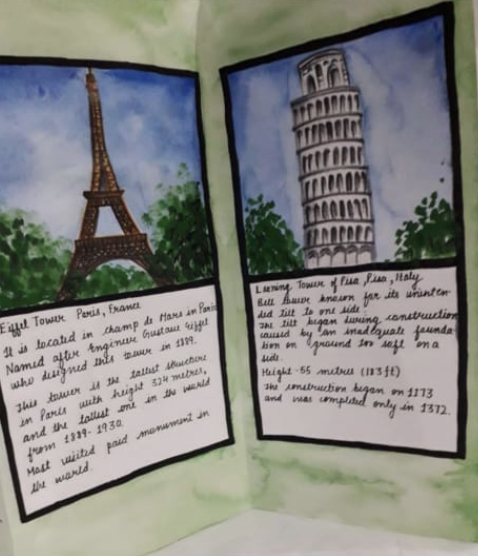 Eiffel Tower Paris, France
It is located in champ de Mars in Paris
Named after Engineer Gustave Eiffel
who designed this tower in 1889.
This tower is the tallest structure
in Paris with height 324 metres,
and the tallest one in the world
from 1889-1930.
Most visited paid monument in
the world.
Leaning Tower of Pisa, Pisa, Italy
Bell tower known for its uninten-
ded tilt to one side.
The tilt began during construction
caused by an inadequate founda-
tion on ground too soft on a
side.
Height-55 metres (183 ft)
The construction began on 1173
and was completed only in 1372.